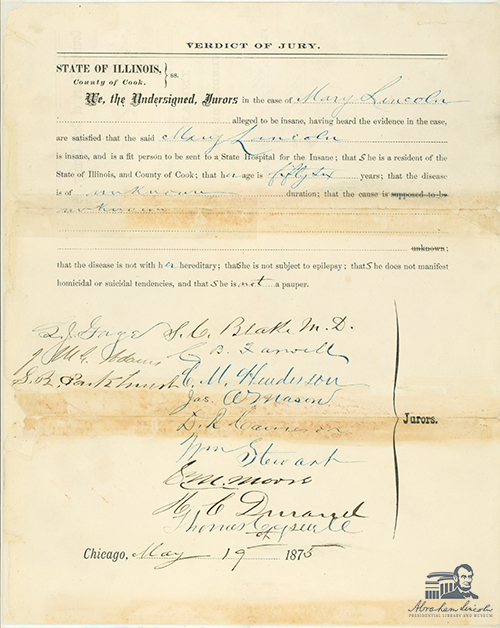 VERDICT OF JURY.
STATE OF ILLINOIS, } ss.
County of Cook.
We, the Undersigned, Jurors in the case of Mary Lincoln
alleged to be insane, having heard the evidence in the case,
are satisfied that the said Mary Lincoln
is insane, and is a fit person to be sent to a State Hospital for the Insane; that She is a resident of the
State of Illinois, and County of Cook; that her age is fifty six years; that the disease
is of unknown duration; that the cause is supposed to be
unknown
unknown;
that the disease is not with her hereditary; that She is not subject to epilepsy; that She does not manifest
homicidal or suicidal tendencies, and that She is not a pauper.
L. J. Gage S. C. Blake M. D.
J. McG. Adams C. B. Farwell
S. B. Parkhurst C. M. Henderson
Jas. A Mason
D. R. Cameron
Jurors.
Wm Stewart
S. M. Moore
H. C. Durand
Thomas
Chicago, May 19 1875
Abraham Lincoln
PRESIDENTIAL LIBRARY AND MUSEUM